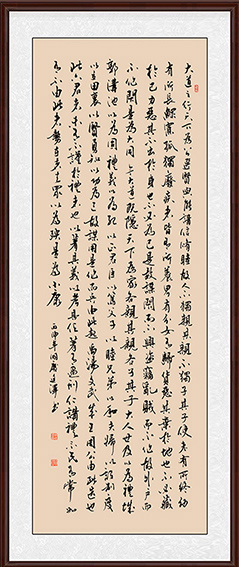 大道之行天下為公選賢與能講信修睦故人不獨親其親不獨子其子使老有所終幼
有所長鰥寡孤獨廢疾者皆有所養男有分女有歸貨惡其棄於地也不必藏
於己力惡其不出於身也不必為己是故謀閉而不興盜竊亂賊而不作故外戶而
不閉是為大同今大道既隱天下為家各親其親各子其子大人世及以為禮城
郭溝池以為固禮義以為紀以正君臣以篤父子以睦兄弟以和夫婦以設制度
以立田裏以賢勇知以功為己故謀用是作而兵由此起禹湯文武成王周公由此選也
此六君子未有不謹於禮者也以著其義以考其信著有過刑仁講禮示民有常如
有不由此者在者去眾以為殃是為小康
丙申年 書